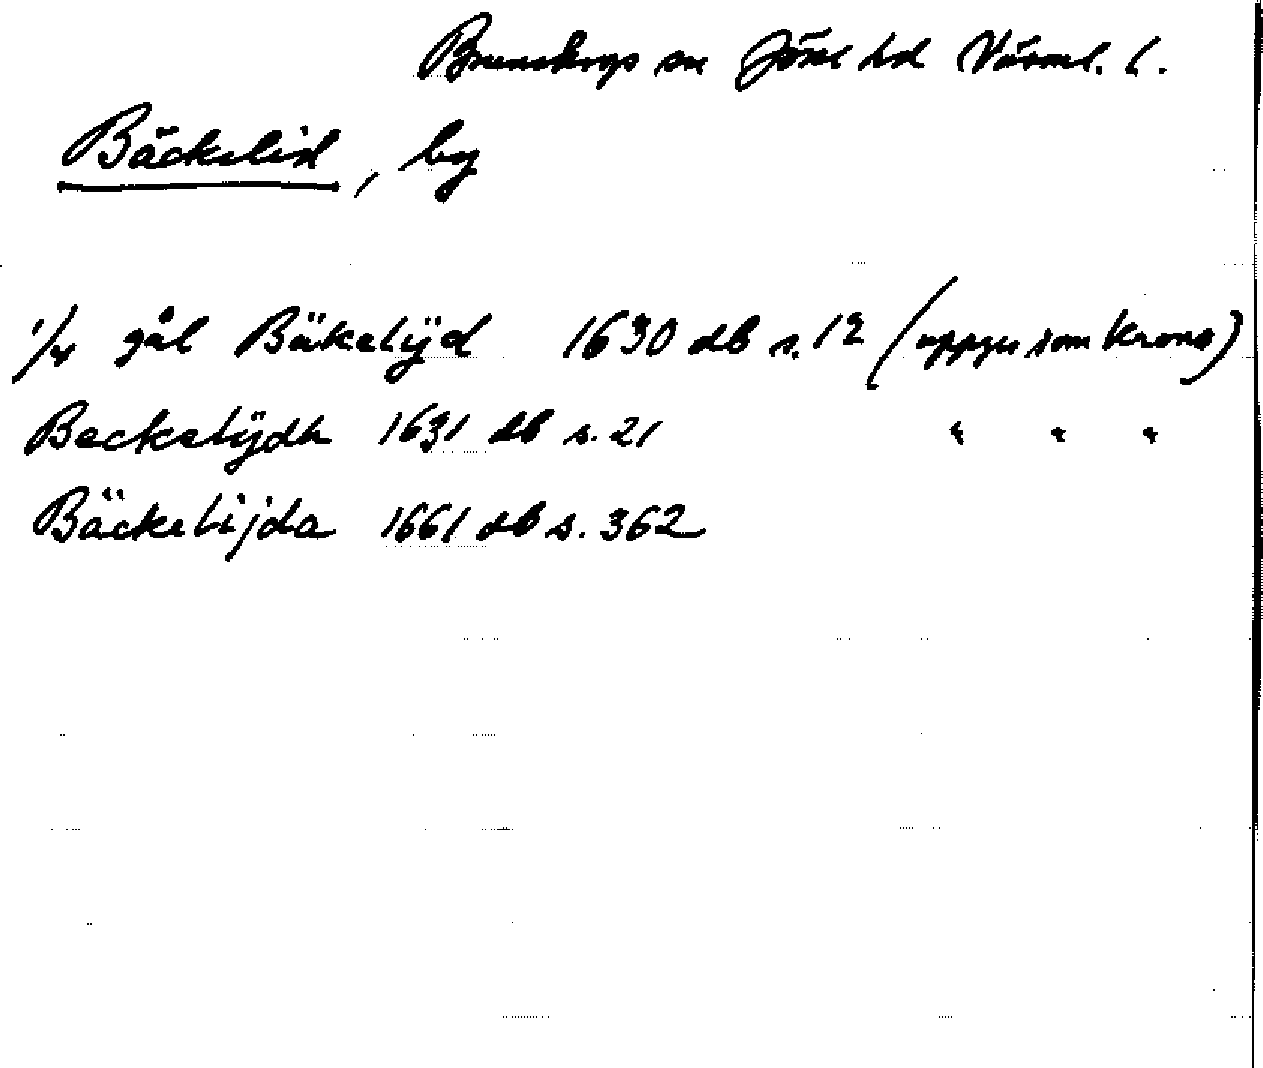 Brunskogs sn Jösse hd Värml. l.
Bäckelid, by
1/4 gål Bäkelÿd 1630 db s. 12 (uppges som Krono)
Beckelÿdh 1631 db s. 21 " " "
Bäckelijda 1661 db s. 362